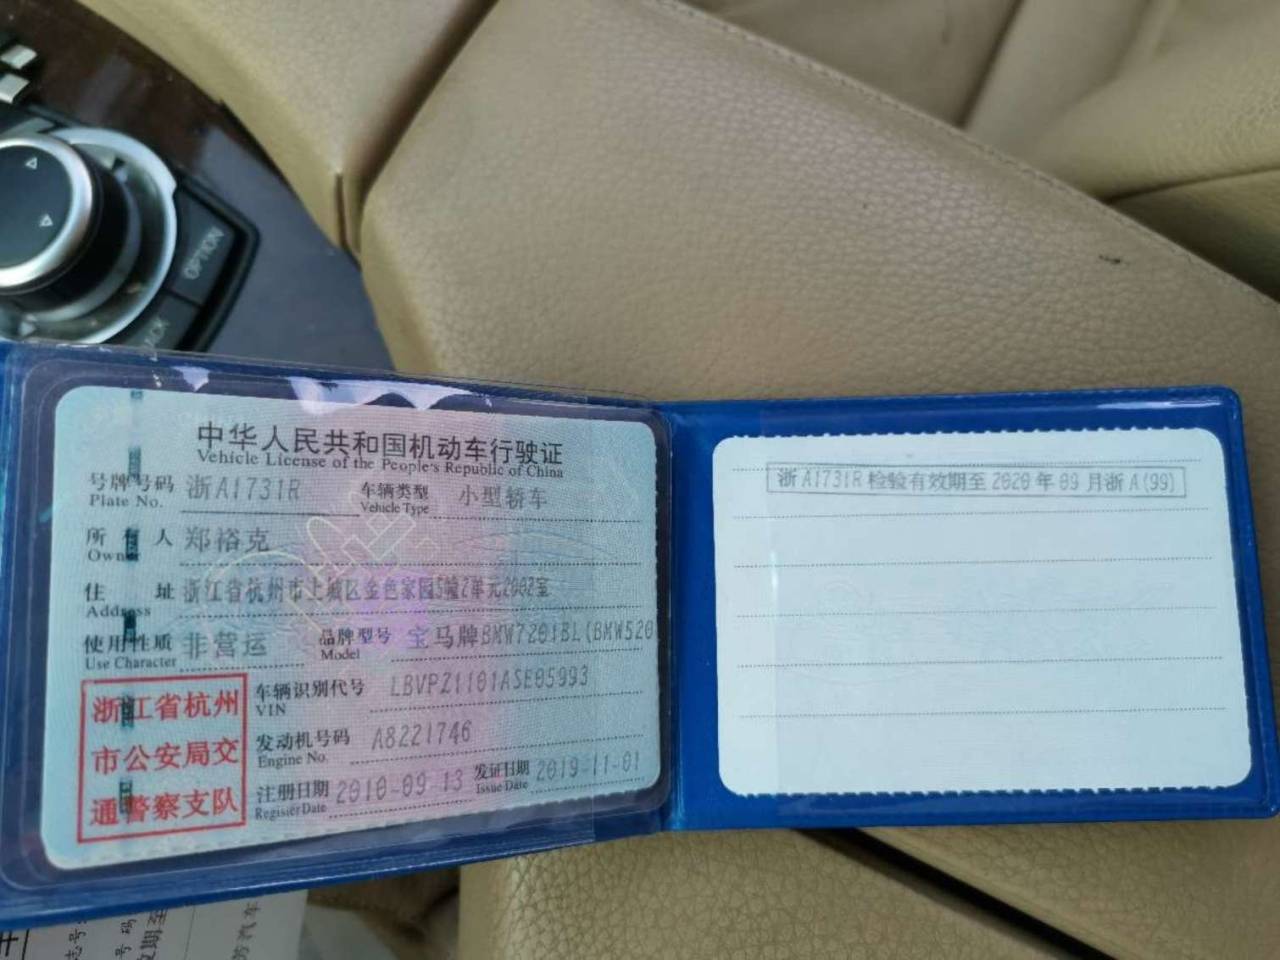 OPTION
中华人民共和国机动车行驶证
Vehicle License of the People's Republic of China
号牌号码 浙A1731R 车辆类型 小型轿车
Plate No. Vehicle Type
所有人 郑裕克
Owner
住址 浙江省杭州市上城区金色家园5幢2单元2002室
Address
使用性质 非营运 品牌型号 宝马牌BMW7201BL(BMW520
Use Character Model
浙江省杭州
市公安局交
通警察支队
车辆识别代号 LBVPZ1101ASE05993
VIN
发动机号码 A8221746
Engine No.
注册日期 2010-09-13 发证日期 2019-11-01
Register Date Issue Date
浙A1731R 检验有效期至 2020 年 09 月浙 A(99)
号码
汽车